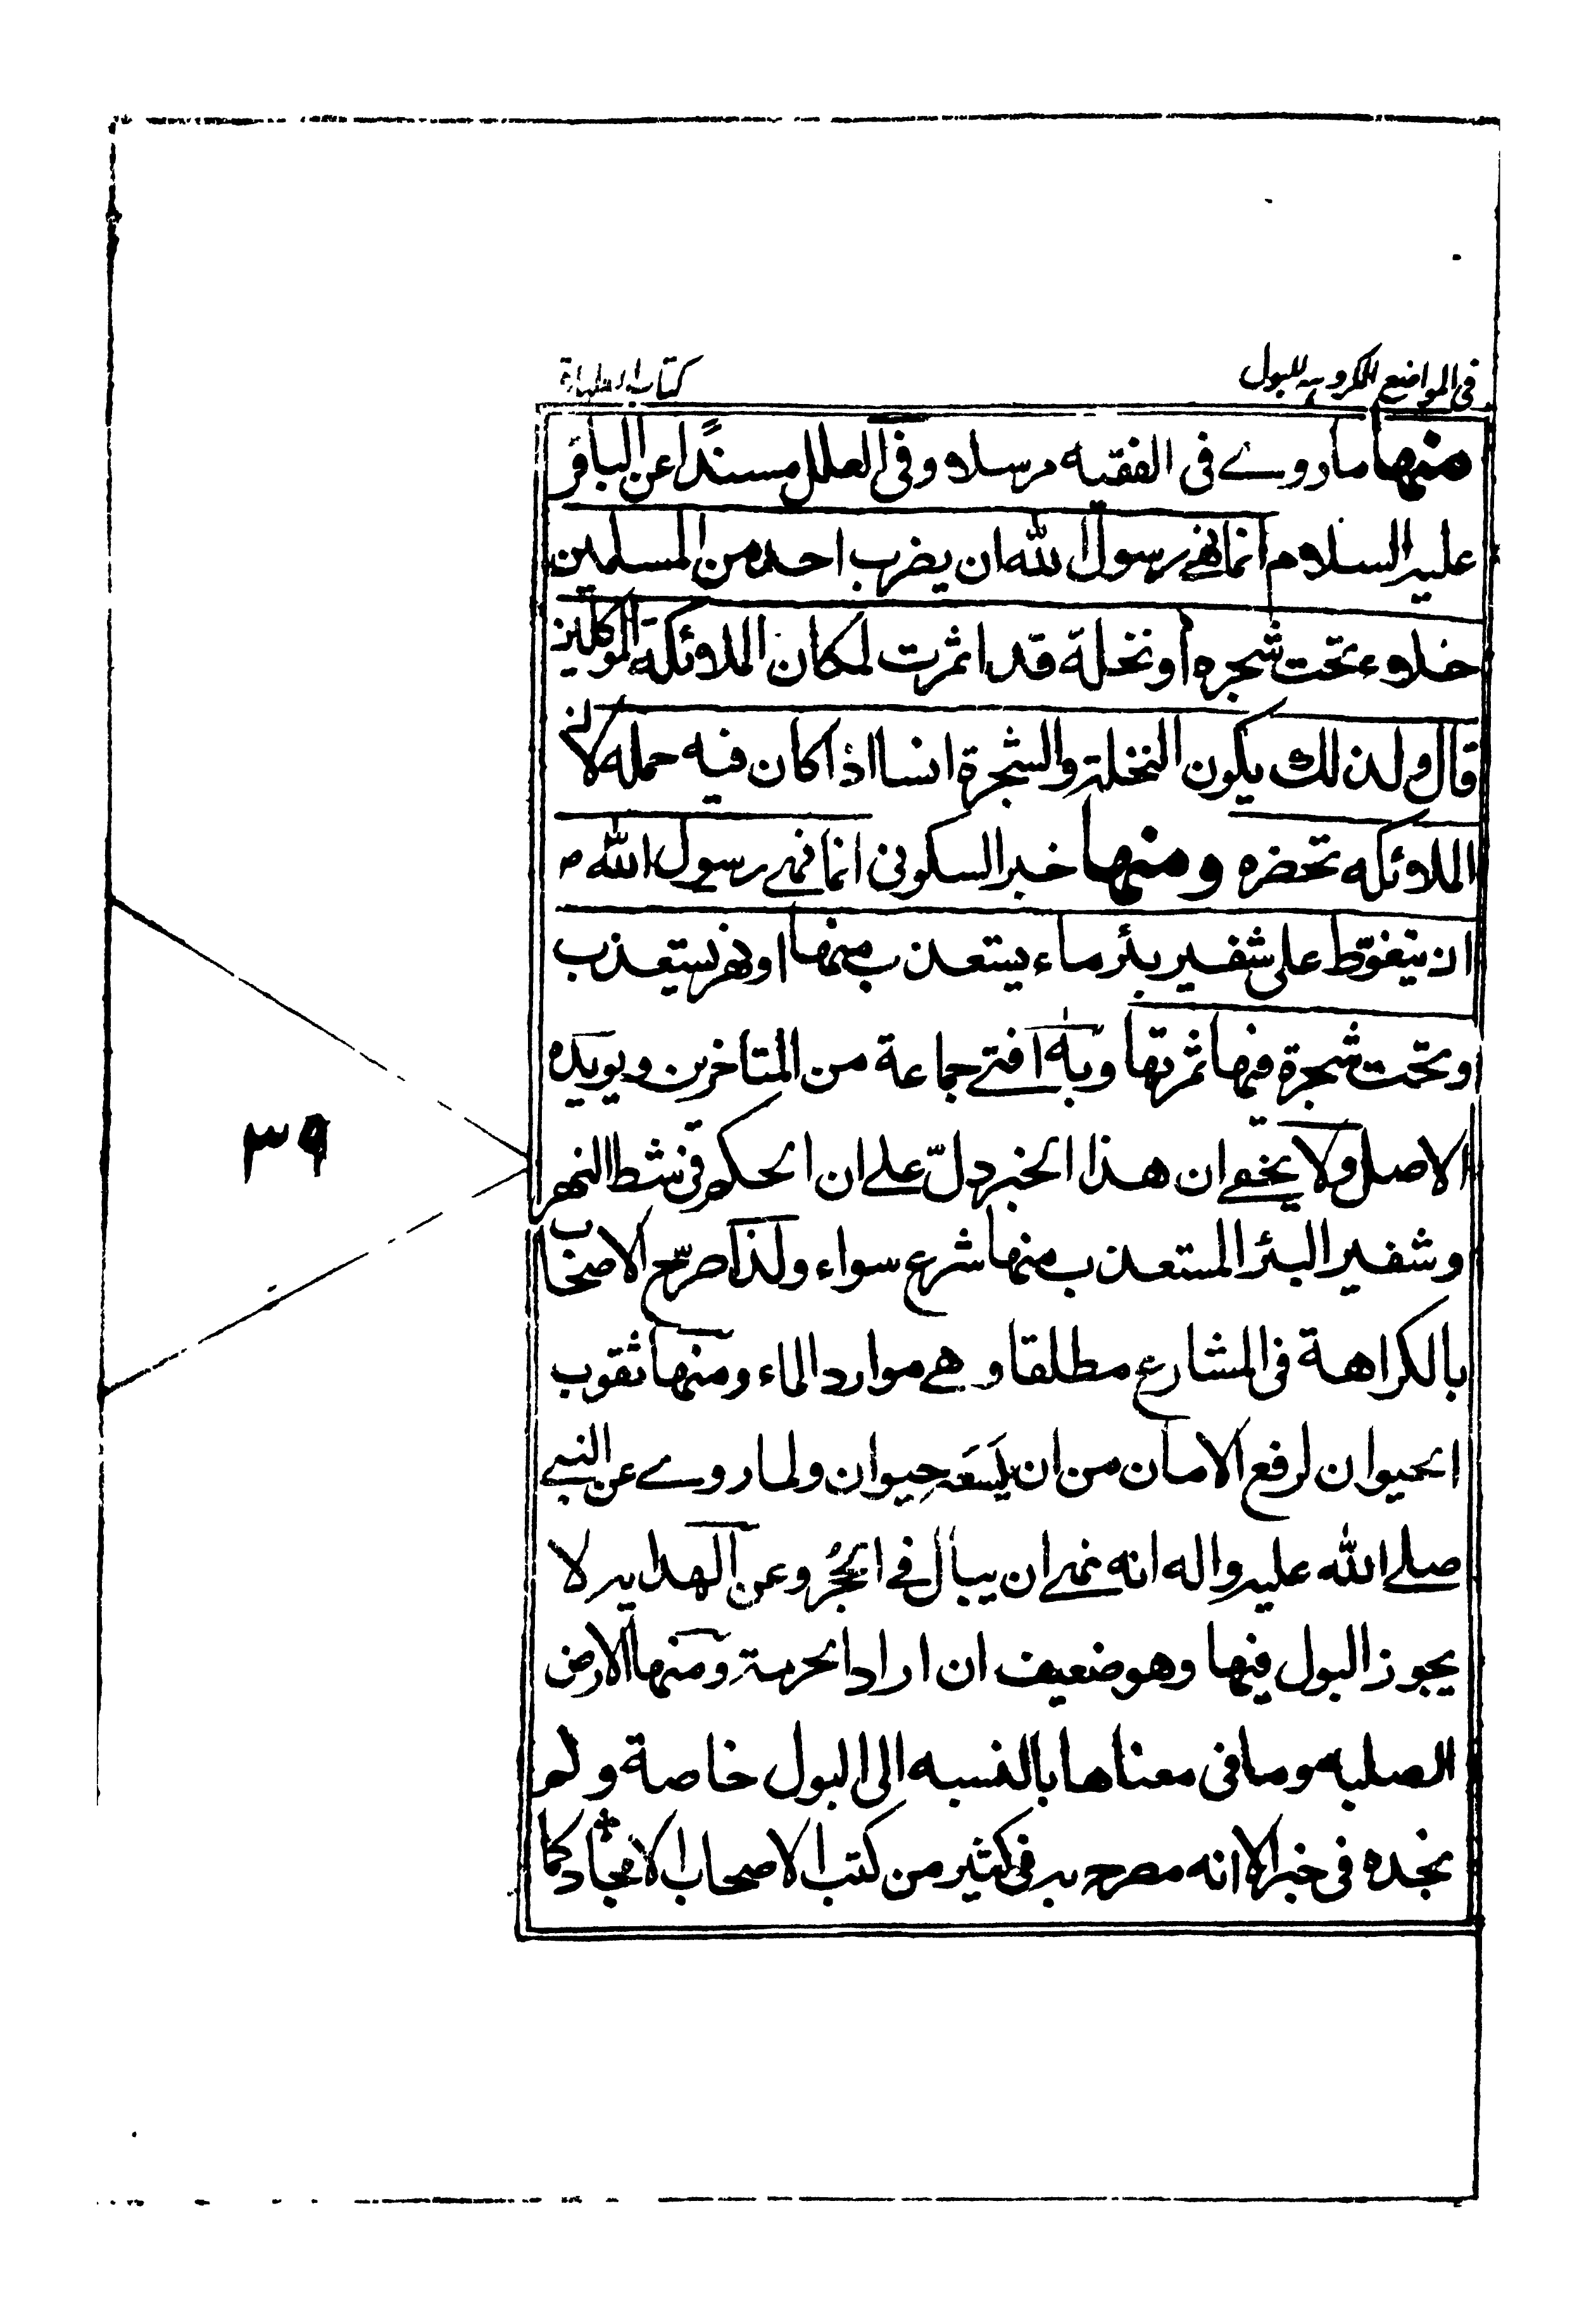 فى المواضع المكروهه للبول
كتاب الطهارة
منها ما روے فى الفقيه مرسلا وفى العلل مسندًا عن الباقر
عليه السلام انما نهے رسول الله ان يضرب احد من المسلمين
خلاء تحت شجره او نخلة قد اثمرت لمكان الملائكة الموكلين
قال ولذلك يكون النخلة والشجرة انسا اذا كان فيه حمله لان
الملائكه تحضره ومنها خبر السكونى انما نهے رسول الله ص
ان يتغوّط على شفير بئر ماء يستعذب منها او نهر يستعذب
او تحت شجرة فيها ثمرتها وبه افتے جماعة من المتاخرين ويويده
الاصل ولا يخفے ان هذا الخبر دلّ علے ان الحكم فى شط النهر
وشفير البئر المستعذب منها شرع سواء ولذا صرّح الاصحاب
بالكراهة فى المشارع مطلقا وهے موارد الماء ومنها ثقوب
الحيوان لرفع الامان من ان يلسَعَه حِيوان ولما روے عن النبے
صلے الله عليه واله انه نهے ان يبال فے الجُحر وعن الهدايه لا
يجوز البول فيها وهو ضعيف ان اراد الحرمة ومنها الارض
الصلبه وما فى معناها بالنسبه الى البول خاصة ولم
نجده فى خبر الا انه مصرح به فى كثير من كتب الاصحاب الامجاد كما
٣٩